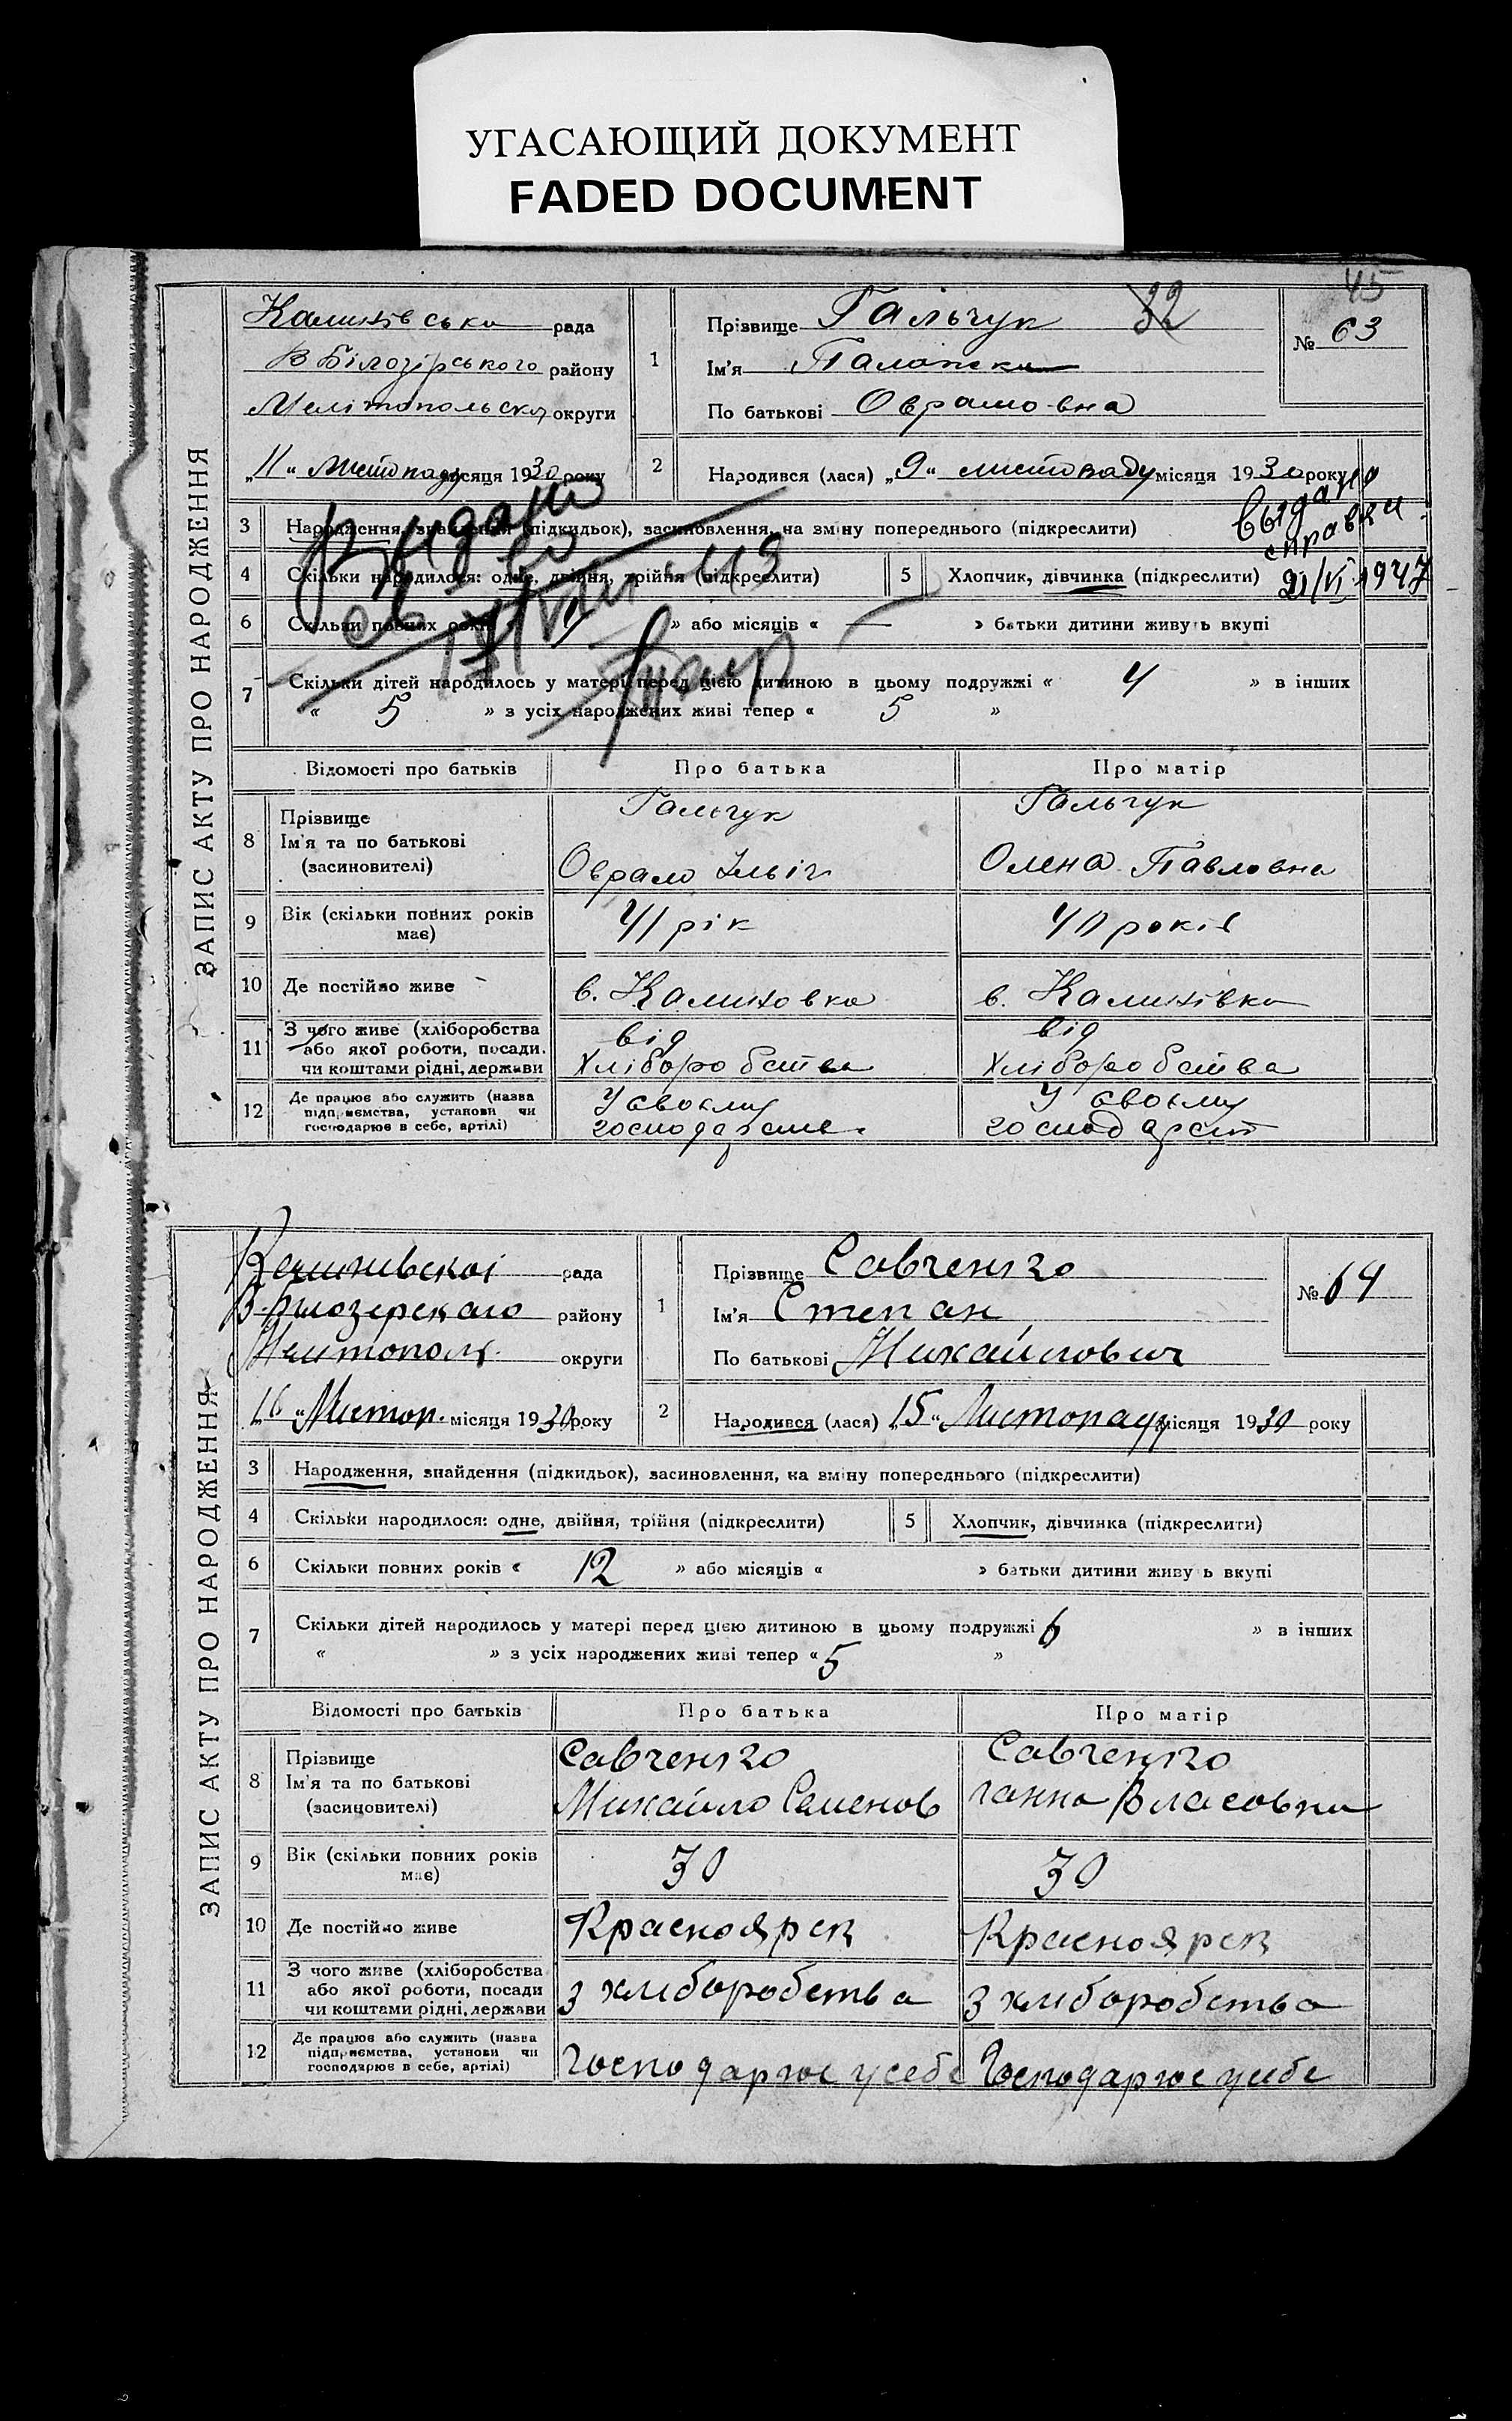 УГАСАЮЩИЙ ДОКУМЕНТ
FADED DOCUMENT
45
ЗАПИС АКТУ ПРО НАРОДЖЕННЯ
Калинівська рада
В Білозірського району
Мелітопольська округи
„11“ Листопаду місяця 1930 року
1 Прізвище Гальчук 32
Ім'я Палажка
По батькові Оврамовна
№ 63
2 Народився (лася) „9“ листопаду місяця 1930 року
3 Народження, знайдення (підкидьок), засиновлення, на зміну попереднього (підкреслити)
Видано
выдано
справки
21/VI 1947
4 Скільки народилося: одне, двійня, трійня (підкреслити) 5 Хлопчик, дівчинка (підкреслити)
6 Скільки повних років « » або місяців « — » батьки дитини живуть вкупі
7 Скільки дітей народилось у матері перед цією дитиною в цьому подружжі « 4 » в інших
« 5 » з усіх народжених живі тепер « 5 »
Відомості про батьків Про батька Про матір
8 Прізвище Гальчук Гальчук
Ім'я та по батькові
(засиновителі) Оврам Ільіч Олена Павловна
9 Вік (скільки повних років має) 41 рік 40 років
10 Де постійно живе в. Калиновка в. Калинівка
11 З чого живе (хліборобства або якої роботи, посади. чи коштами рідні, держави від хліборобства від хліборобства
12 Де працює або служить (назва підприємства, установи чи господарює в себе, артілі) У своєму У своєму
ЗАПИС АКТУ ПРО НАРОДЖЕННЯ
Калинивскоі рада
району
Мелитопол. округи
„16“ Листоп. місяця 1930 року
1 Прізвище Савченко
Ім'я Степан
По батькові Михайлович
№ 64
2 Народився (лася) „15“ Листопаду місяця 1930 року
3 Народження, знайдення (підкидьок), засиновлення, на зміну попереднього (підкреслити)
4 Скільки народилося: одне, двійня, трійня (підкреслити) 5 Хлопчик, дівчинка (підкреслити)
6 Скільки повних років « 12 » або місяців « » батьки дитини живу ь вкупі
7 Скільки дітей народилось у матері перед цією дитиною в цьому подружжі 6 » в інших
« » з усіх народжених живі тепер « 5 »
Відомості про батьків Про батька Про матір
8 Прізвище Савченко Савченко
Ім'я та по батькові
(засиновителі) Михайло Семенов Ганна Власовна
9 Вік (скільки повних років має) 30 30
10 Де постійно живе Красноярск Красноярск
11 З чого живе (хліборобства або якої роботи, посади чи коштами рідні, держави з хлиборобства з хлиборобства
12 Де працює або служить (назва підприємства, установи чи господарює в себе, артілі) Господарює у себе Господарює у себе